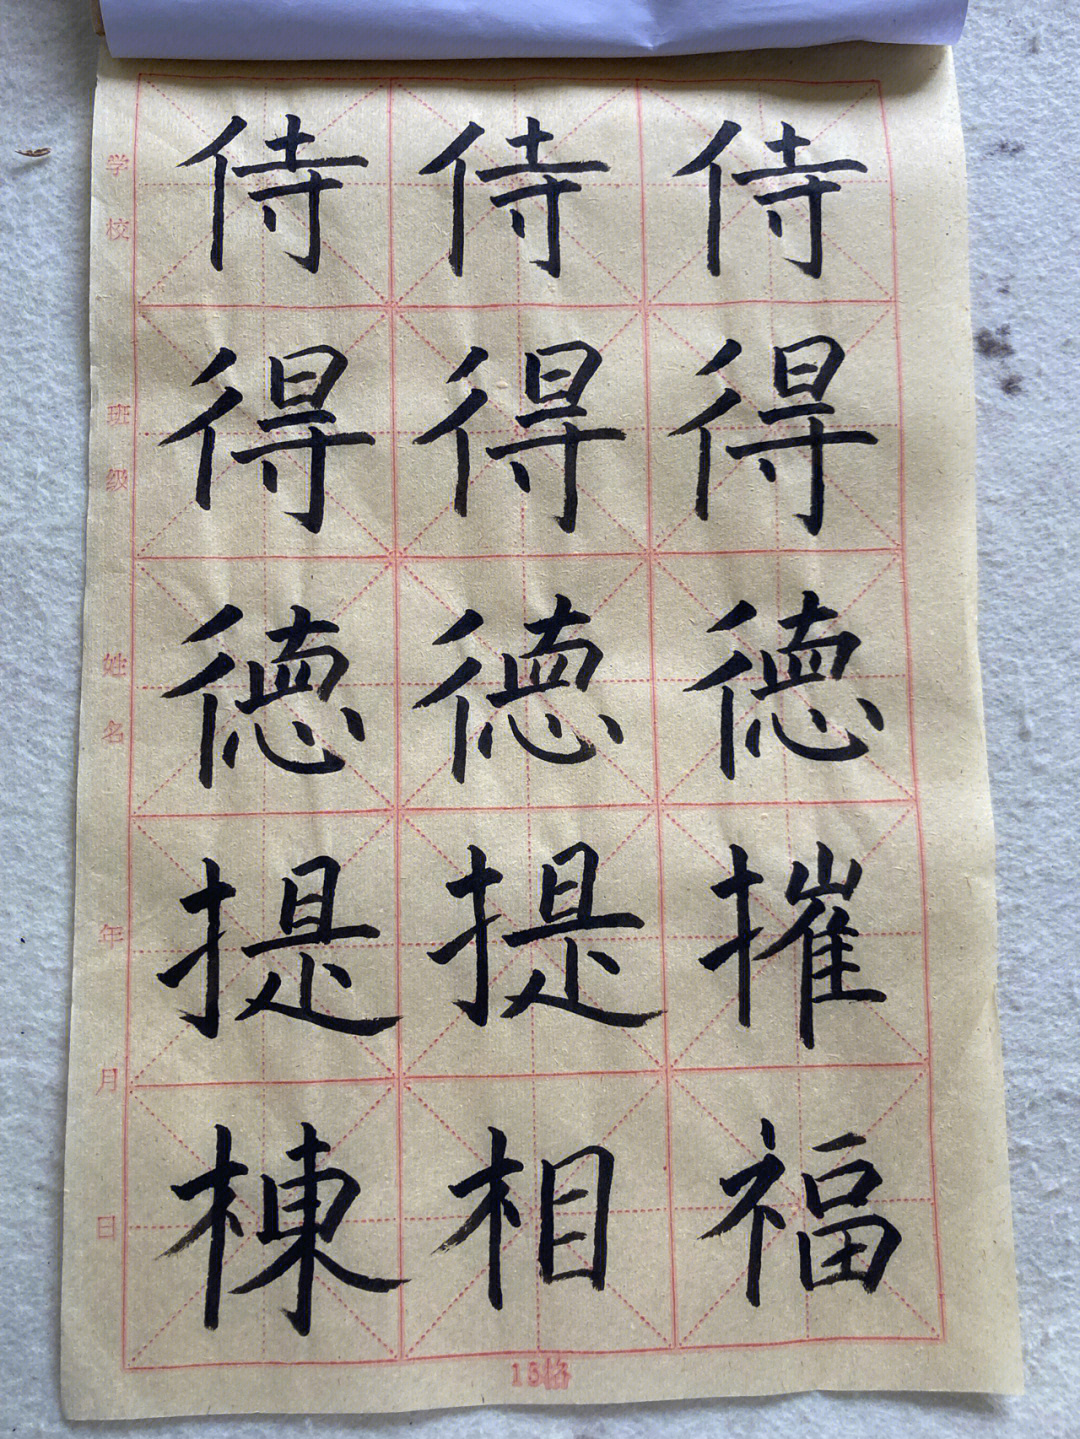 侍侍侍
得得得
德德德
提提摧
棟相福
学校
班级
姓名
年
月
日
15格